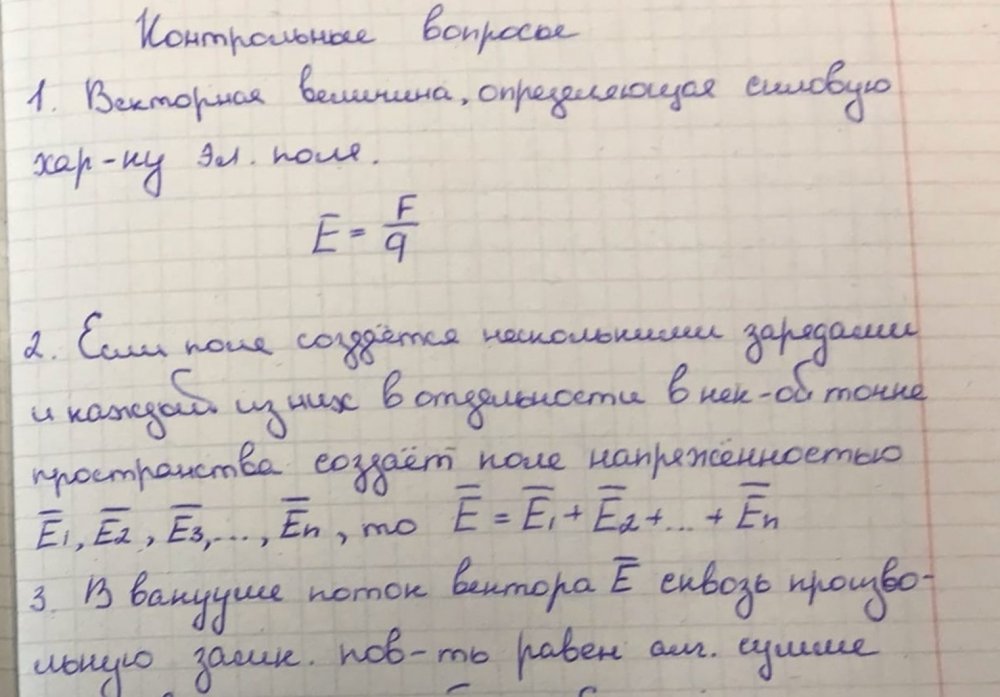 Контрольные вопросы
1. Векторная величина, определяющая силовую
хар-ку эл. поля.
E = F/q
2. Если поле создаётся несколькими зарядами
и каждый из них в отдельности в нек-ой точке
пространства создаёт поле напряжённостью
E̅₁, E̅₂, E̅₃, ..., E̅n, то E̅ = E̅₁ + E̅₂ + ... + E̅n
3. В вакууме поток вектора E̅ сквозь произво-
льную замк. пов-ть равен алг. сумме